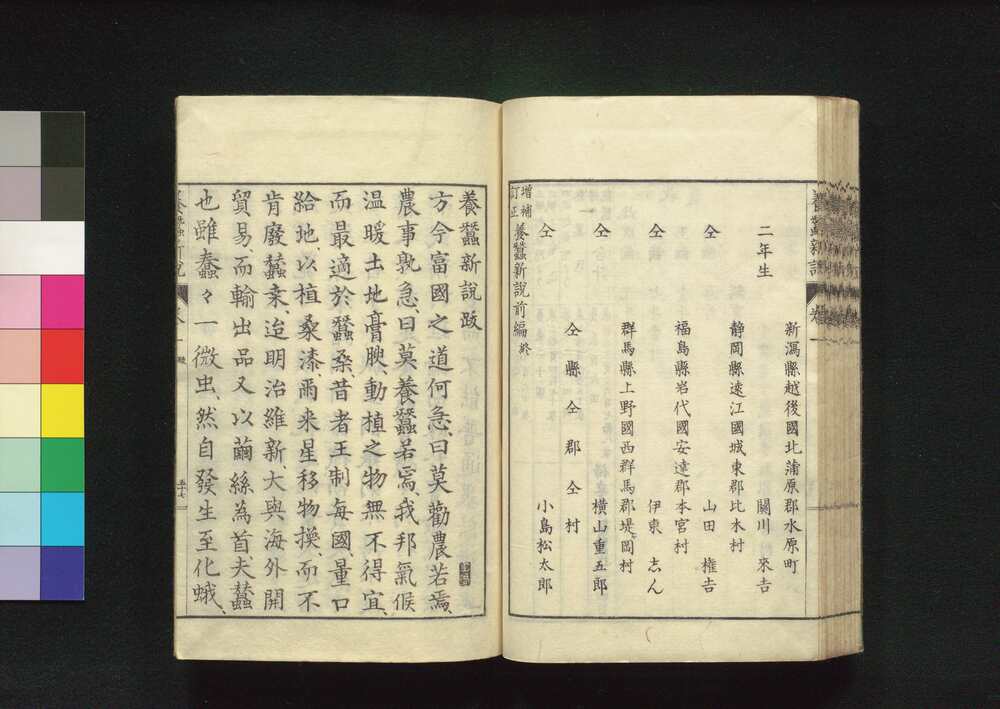 新潟縣越後國北蒲原郡水原町
二年生　關川來吉
静岡縣遠江國城東郡比木村
仝　山田權吉
福島縣岩代國安達郡本宮村
仝　伊東志ん
群馬縣上野國西群馬郡堤ヶ岡村
仝　横山重五郎
仝縣仝郡仝村
仝　小島松太郎
増補訂正養蠶新説前編終
養蠶新説跋
方今富國之道何急、曰莫勸農若焉、
農事孰急、曰莫養蠶若焉、我邦氣候
温暖土地膏腴、動植之物無不得宜、
而最適於蠶桑、昔者王制每國、量口
給地、以植桑漆、爾来星移物換、而不
肯廢蠶桒、迨明治維新、大與海外開
貿易、而輸出品又以繭絲為首、夫蠶
也雖蠢々一微虫、然自發生至化蛾、
養蠶新説